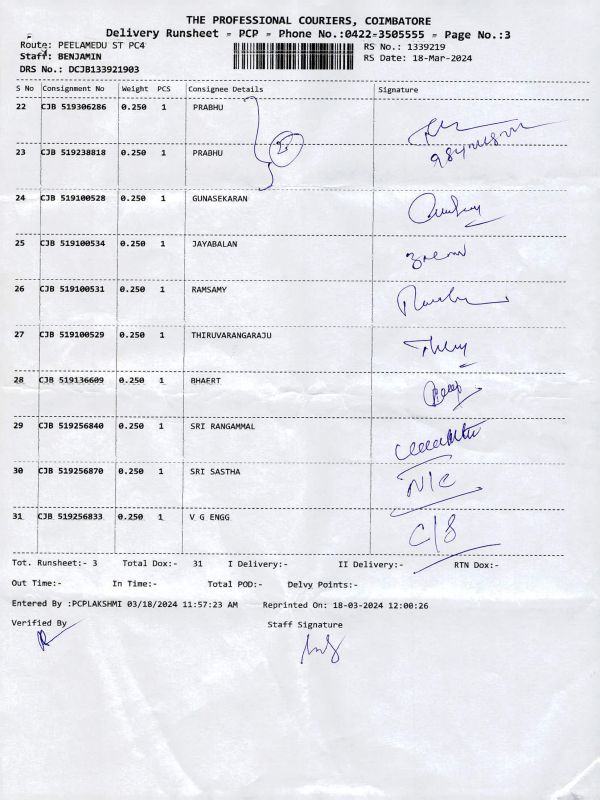 THE PROFESSIONAL COURIERS, COIMBATORE
Delivery Runsheet - PCP - Phone No.:0422-3505555 - Page No.:3
Route: PEELAMEDU ST PC4 RS No.: 1339219
Staff: BENJAMIN RS Date: 18-Mar-2024
DRS No.: DCJB133921903
S No Consignment No Weight PCS Consignee Details Signature
22 CJB 519306286 0.250 1 PRABHU
23 CJB 519238818 0.250 1 PRABHU
24 CJB 519100528 0.250 1 GUNASEKARAN
25 CJB 519100534 0.250 1 JAYABALAN
26 CJB 519100531 0.250 1 RAMSAMY
27 CJB 519100529 0.250 1 THIRUVARANGARAJU
28 CJB 519136609 0.250 1 BHAERT
29 CJB 519256840 0.250 1 SRI RANGAMMAL
30 CJB 519256870 0.250 1 SRI SASTHA N/C
31 CJB 519256833 0.250 1 V G ENGG C/S
Tot. Runsheet:- 3 Total Dox:- 31 I Delivery:- II Delivery:- RTN Dox:-
Out Time:- In Time:- Total POD:- Delvy Points:-
Entered By :PCPLAKSHMI 03/18/2024 11:57:23 AM Reprinted On: 18-03-2024 12:00:26
Verified By Staff Signature